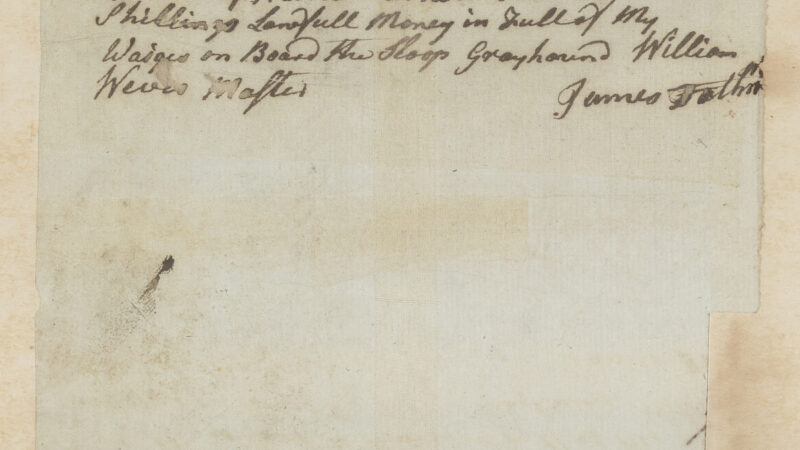 Shillings Lawfull Money in Full of My
Wadges on Board the Sloop Grayhound William
Master
James